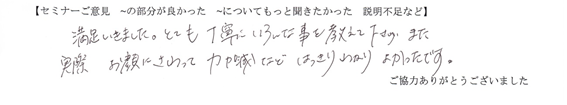 【セミナーご意見　~の部分が良かった　~についてもっと聞きたかった　説明不足など】
満足いきました。とても丁寧にいろんな事を教えて下さり、また
実際　お顔にさわって力加減などはっきりわかりよかったです。
ご協力ありがとうございました